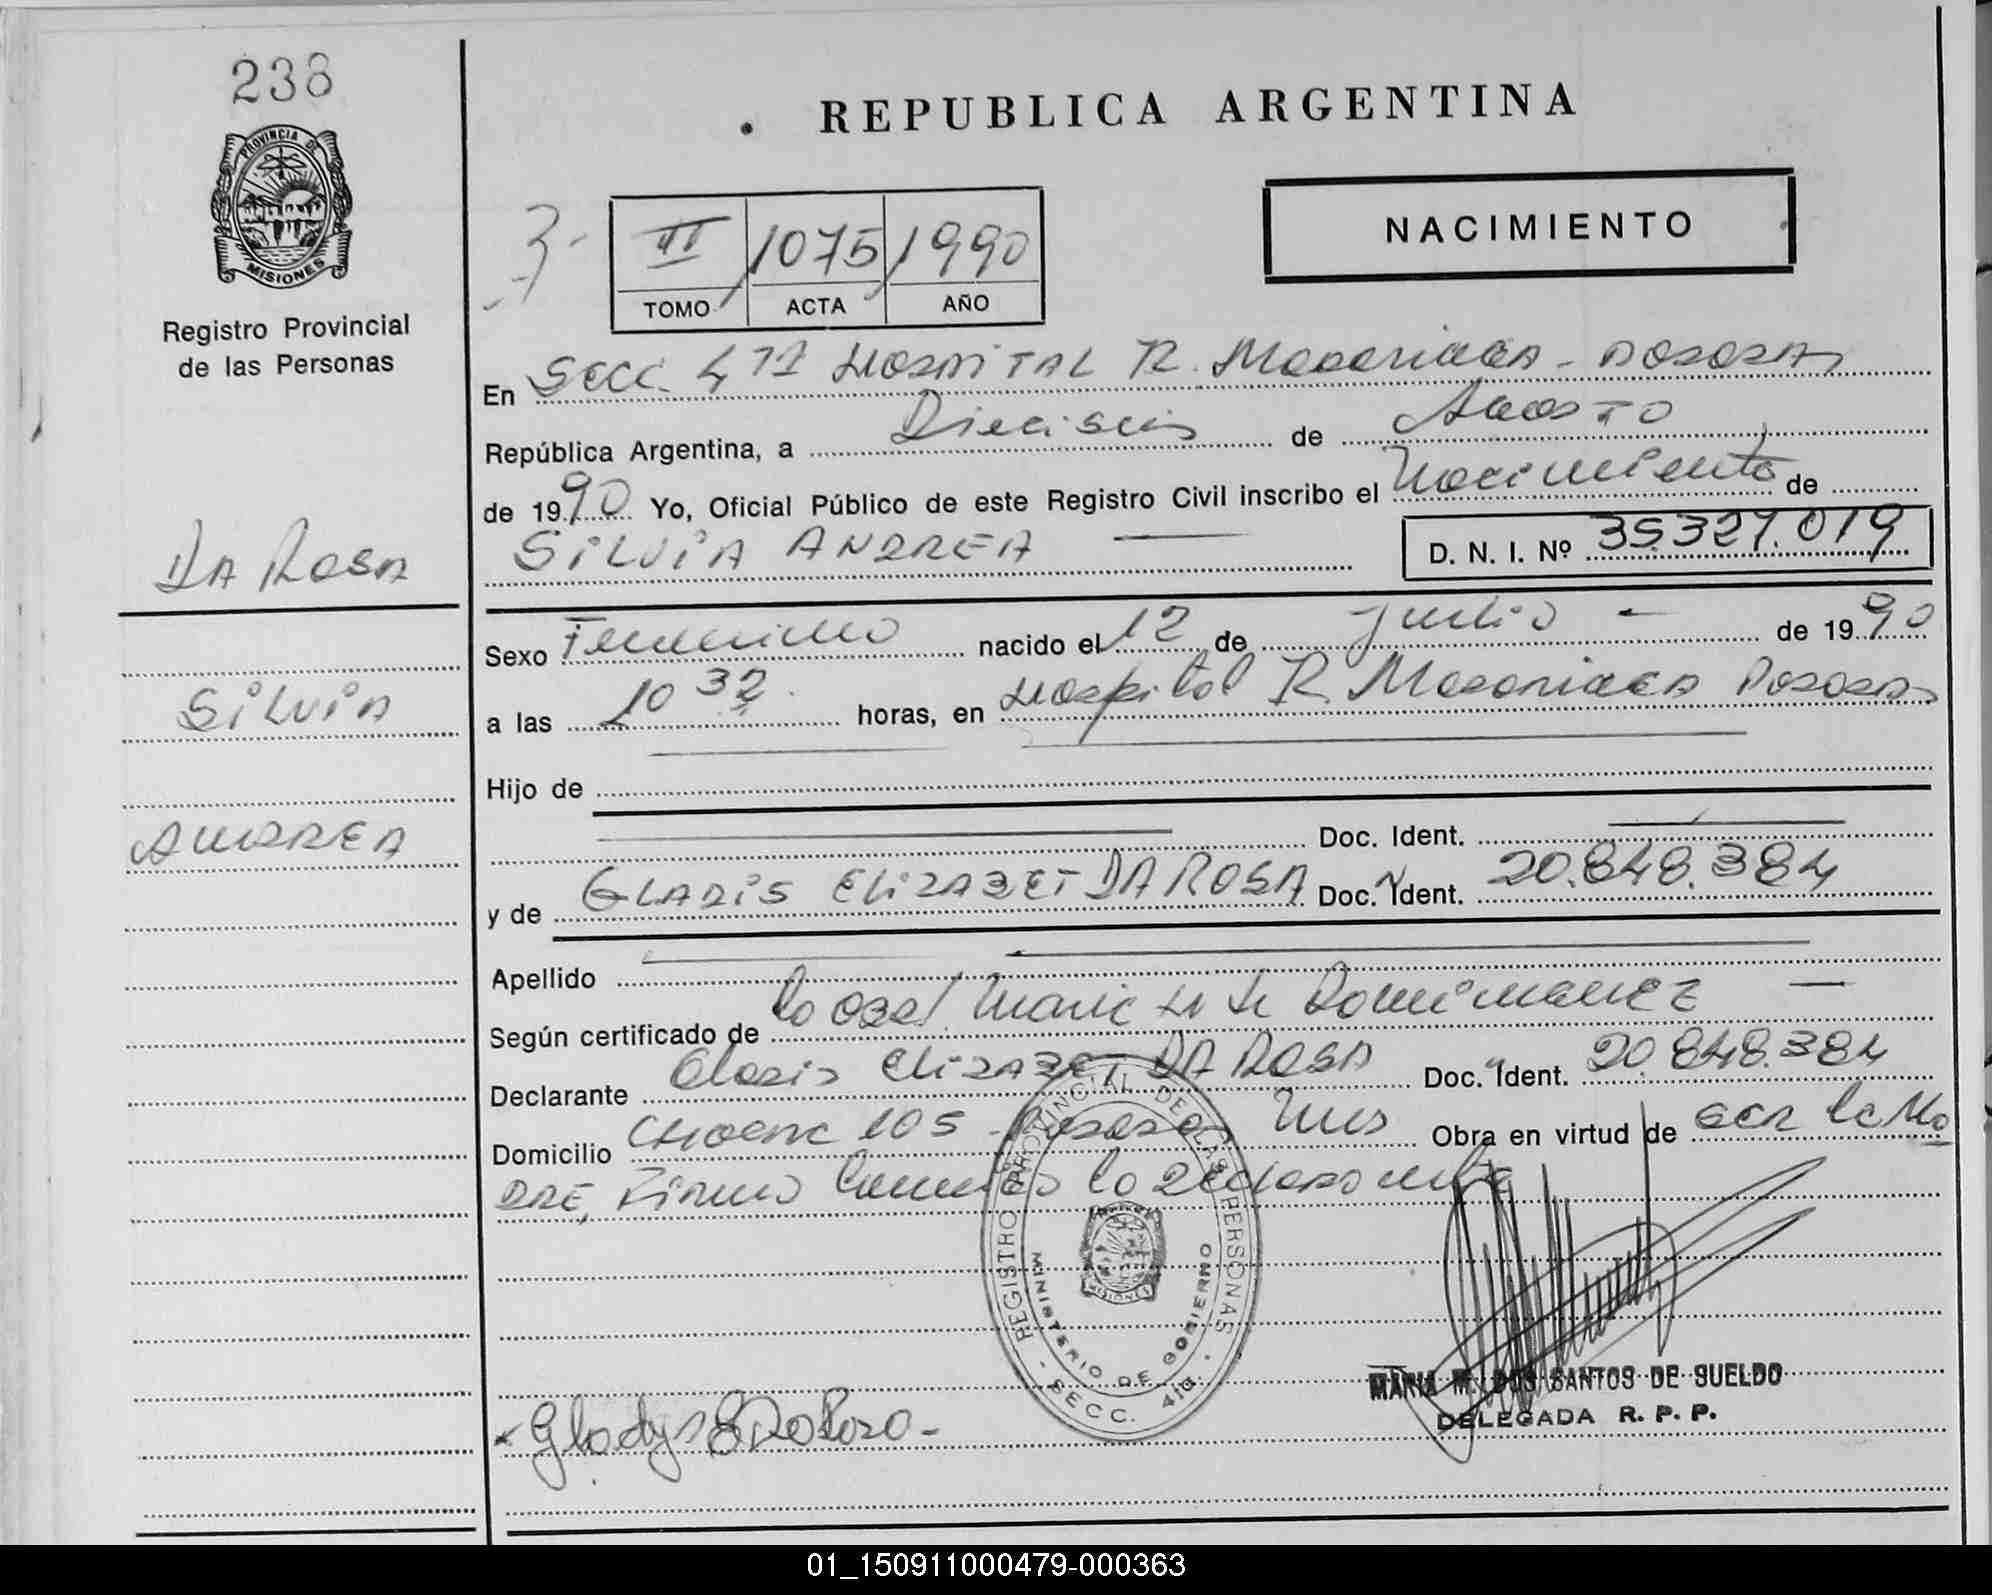 238
PROVINCIA DE
MISIONES
Registro Provincial
de las Personas
DA ROSA
SILVIA
ANDREA
REPUBLICA ARGENTINA
NACIMIENTO
3-
III 1075 1990
TOMO ACTA AÑO
En SECC. 4ta HOSPITAL R. MADARIAGA - POSADAS
República Argentina, a Dieciseis de Agosto
de 1990 Yo, Oficial Público de este Registro Civil inscribo el Nacimiento de
SILVIA ANDREA D. N. I. Nº 35.327.019
Sexo Femenino nacido el 12 de Julio de 1990
a las 10 32 horas, en Hospital R. Madariaga Posadas
Hijo de
Doc. Ident.
y de GLADIS ELIZABET DA ROSA Doc. Ident. 20.848.384
Apellido
Según certificado de la obst. Dominguez
Declarante Gladis Elizabet DA ROSA Doc. Ident. 20.848.384
Domicilio 105 - Posadas Mnes Obra en virtud de ser la Ma
DRE,
REGISTRO PROVINCIAL DE LAS PERSONAS
MINISTERIO DE GOBIERNO
MISIONES
SECC. 4ta.
MARIA M. DOS SANTOS DE SUELDO
DELEGADA R. P. P.
Gladys E Da Rosa
01_150911000479-000363